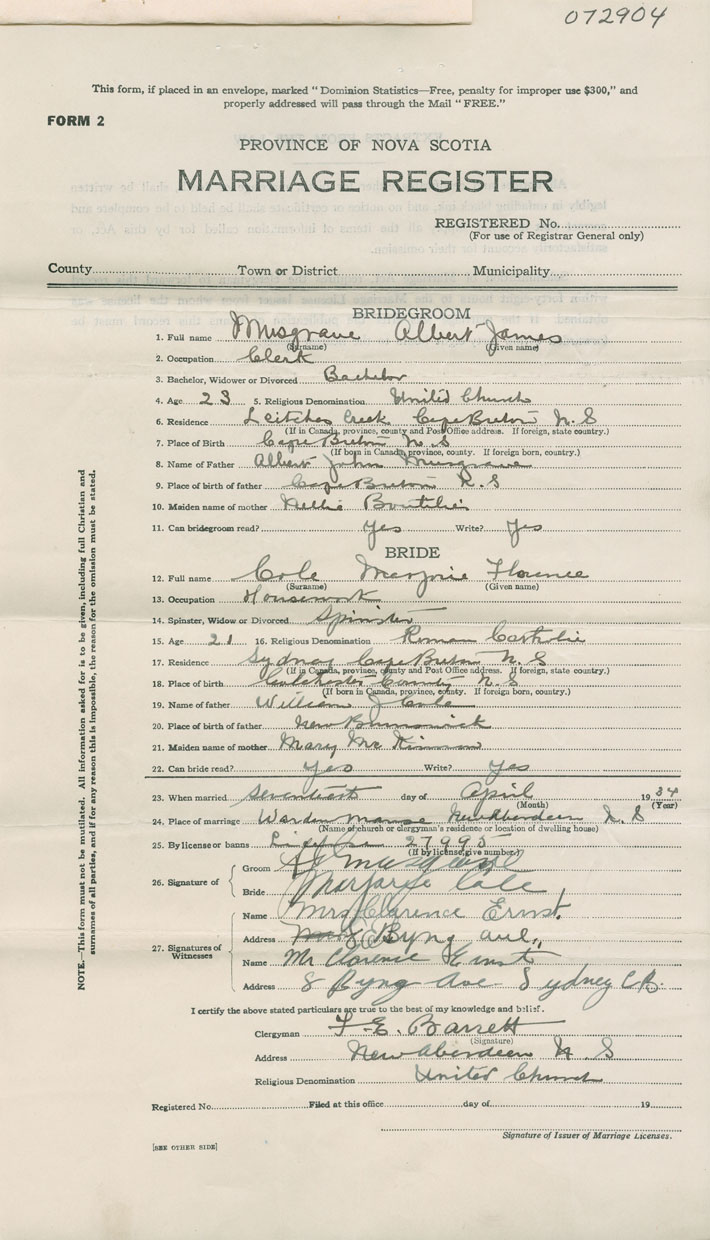 072904
This form, if placed in an envelope, marked "Dominion Statistics—Free, penalty for improper use $300," and
properly addressed will pass through the Mail "FREE."
FORM 2
PROVINCE OF NOVA SCOTIA
MARRIAGE REGISTER
REGISTERED No.
(For use of Registrar General only)
County Town or District Municipality
BRIDEGROOM
1. Full name Musgrave Albert James
(Surname) (Given name)
2. Occupation Clerk
3. Bachelor, Widower or Divorced Bachelor
4. Age 23 5. Religious Denomination United Church
6. Residence Leitches Creek Cape Breton N.S
(If in Canada, province, county and Post Office address. If foreign, state country.)
7. Place of Birth Cape Breton N.S
(If born in Canada, province, county. If foreign born, country.)
8. Name of Father Albert John Musgrave
9. Place of birth of father Cape Breton N.S
10. Maiden name of mother Nellie Boutilier
11. Can bridegroom read? Yes Write? Yes
BRIDE
12. Full name Cole Marjorie Florence
(Surname) (Given name)
13. Occupation Housework
14. Spinster, Widow or Divorced Spinster
15. Age 21 16. Religious Denomination Roman Catholic
17. Residence Sydney Cape Breton N.S
(If in Canada, province, county and Post Office address. If foreign, state country.)
18. Place of birth Colchester County N.S
(If born in Canada, province, county. If foreign born, country.)
19. Name of father William J Cole
20. Place of birth of father New Brunswick
21. Maiden name of mother Mary McKinnon
22. Can bride read? Yes Write? Yes
23. When married day of April 1934
(Month) (Year)
24. Place of marriage Warden Manse New Aberdeen N.S
(Name of church or clergyman's residence or location of dwelling house)
25. By license or banns 27993
(If by license, give number)
26. Signature of
Groom Musgrave
Bride Marjorie Cole
27. Signatures of Witnesses
Name Mrs Clarence Ernst.
Address Byng ave.,
Name Mr Clarence Ernst
Address 8 Byng Ave Sydney C.B.
I certify the above stated particulars are true to the best of my knowledge and belief.
Clergyman F. E. Barrett
(Signature)
Address New Aberdeen N S
Religious Denomination United Church
Registered No. Filed at this office day of 19
Signature of Issuer of Marriage Licenses.
[SEE OTHER SIDE]
NOTE.—This form must not be mutilated. All information asked for is to be given, including full Christian and
surnames of all parties, and if for any reason this is impossible, the reason for the omission must be stated.